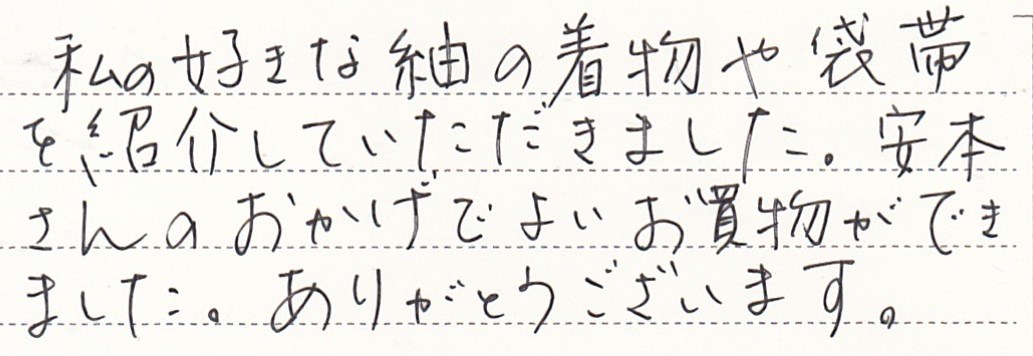 私の好きな紬の着物や袋帯
を紹介していただきました。安本
さんのおかげでよいお買物ができ
ました。ありがとうございます。